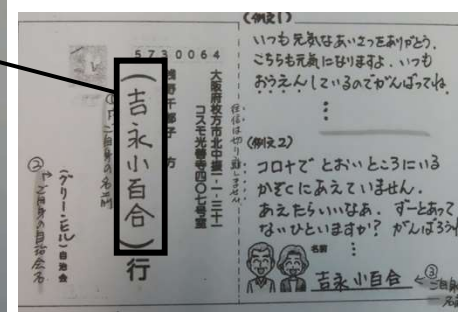 (例文1)
いつも元気なあいさつをありがとう.
こちらも元気になりますよ. いつも
おうえんしているのでがんばってね.
(例文2)
コロナで とおいところにいる
かぞくにあえていません.
あえたらいいなあ. ずーとあって
ないひといますか? がんばろうね
名前
吉永小百合
③
ご自身
名前
5730064
大阪府枚方市北中振二-三十一
コスモ光善寺四〇七号室
千都子 方
(吉永小百合)行
ご自身の名前
(グリーンヒル)自治会
②
ご自身の自治会名
往信は切り離しません